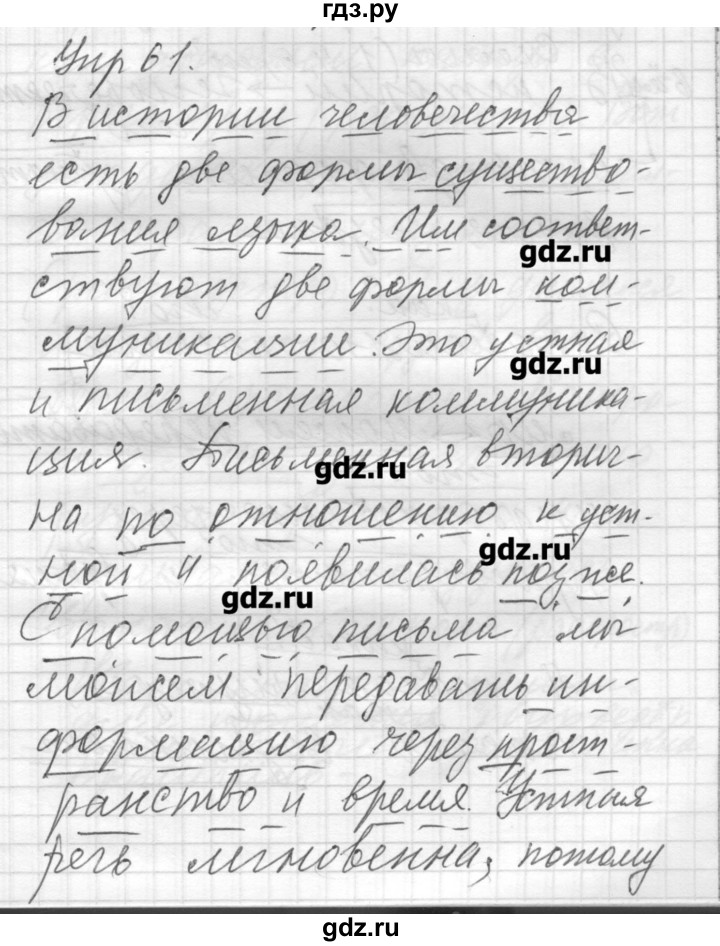 гдз.ру
Упр 61.
В истории человечества
есть две формы существо-
вания языка. Им соответ-
gdz.ru
ствуют две формы ком-
муникации. Это устная
gdz.ru
и письменная коммуника-
ция. Письменная вторич-
gdz.ru
на по отношению к уст-
gdz.ru
ной и появилась позже.
gdz.ru
С помощью письма мы
можем передавать ин-
формацию через прост-
ранство и время. Устная
речь мгновенна, потому
gdz.ru